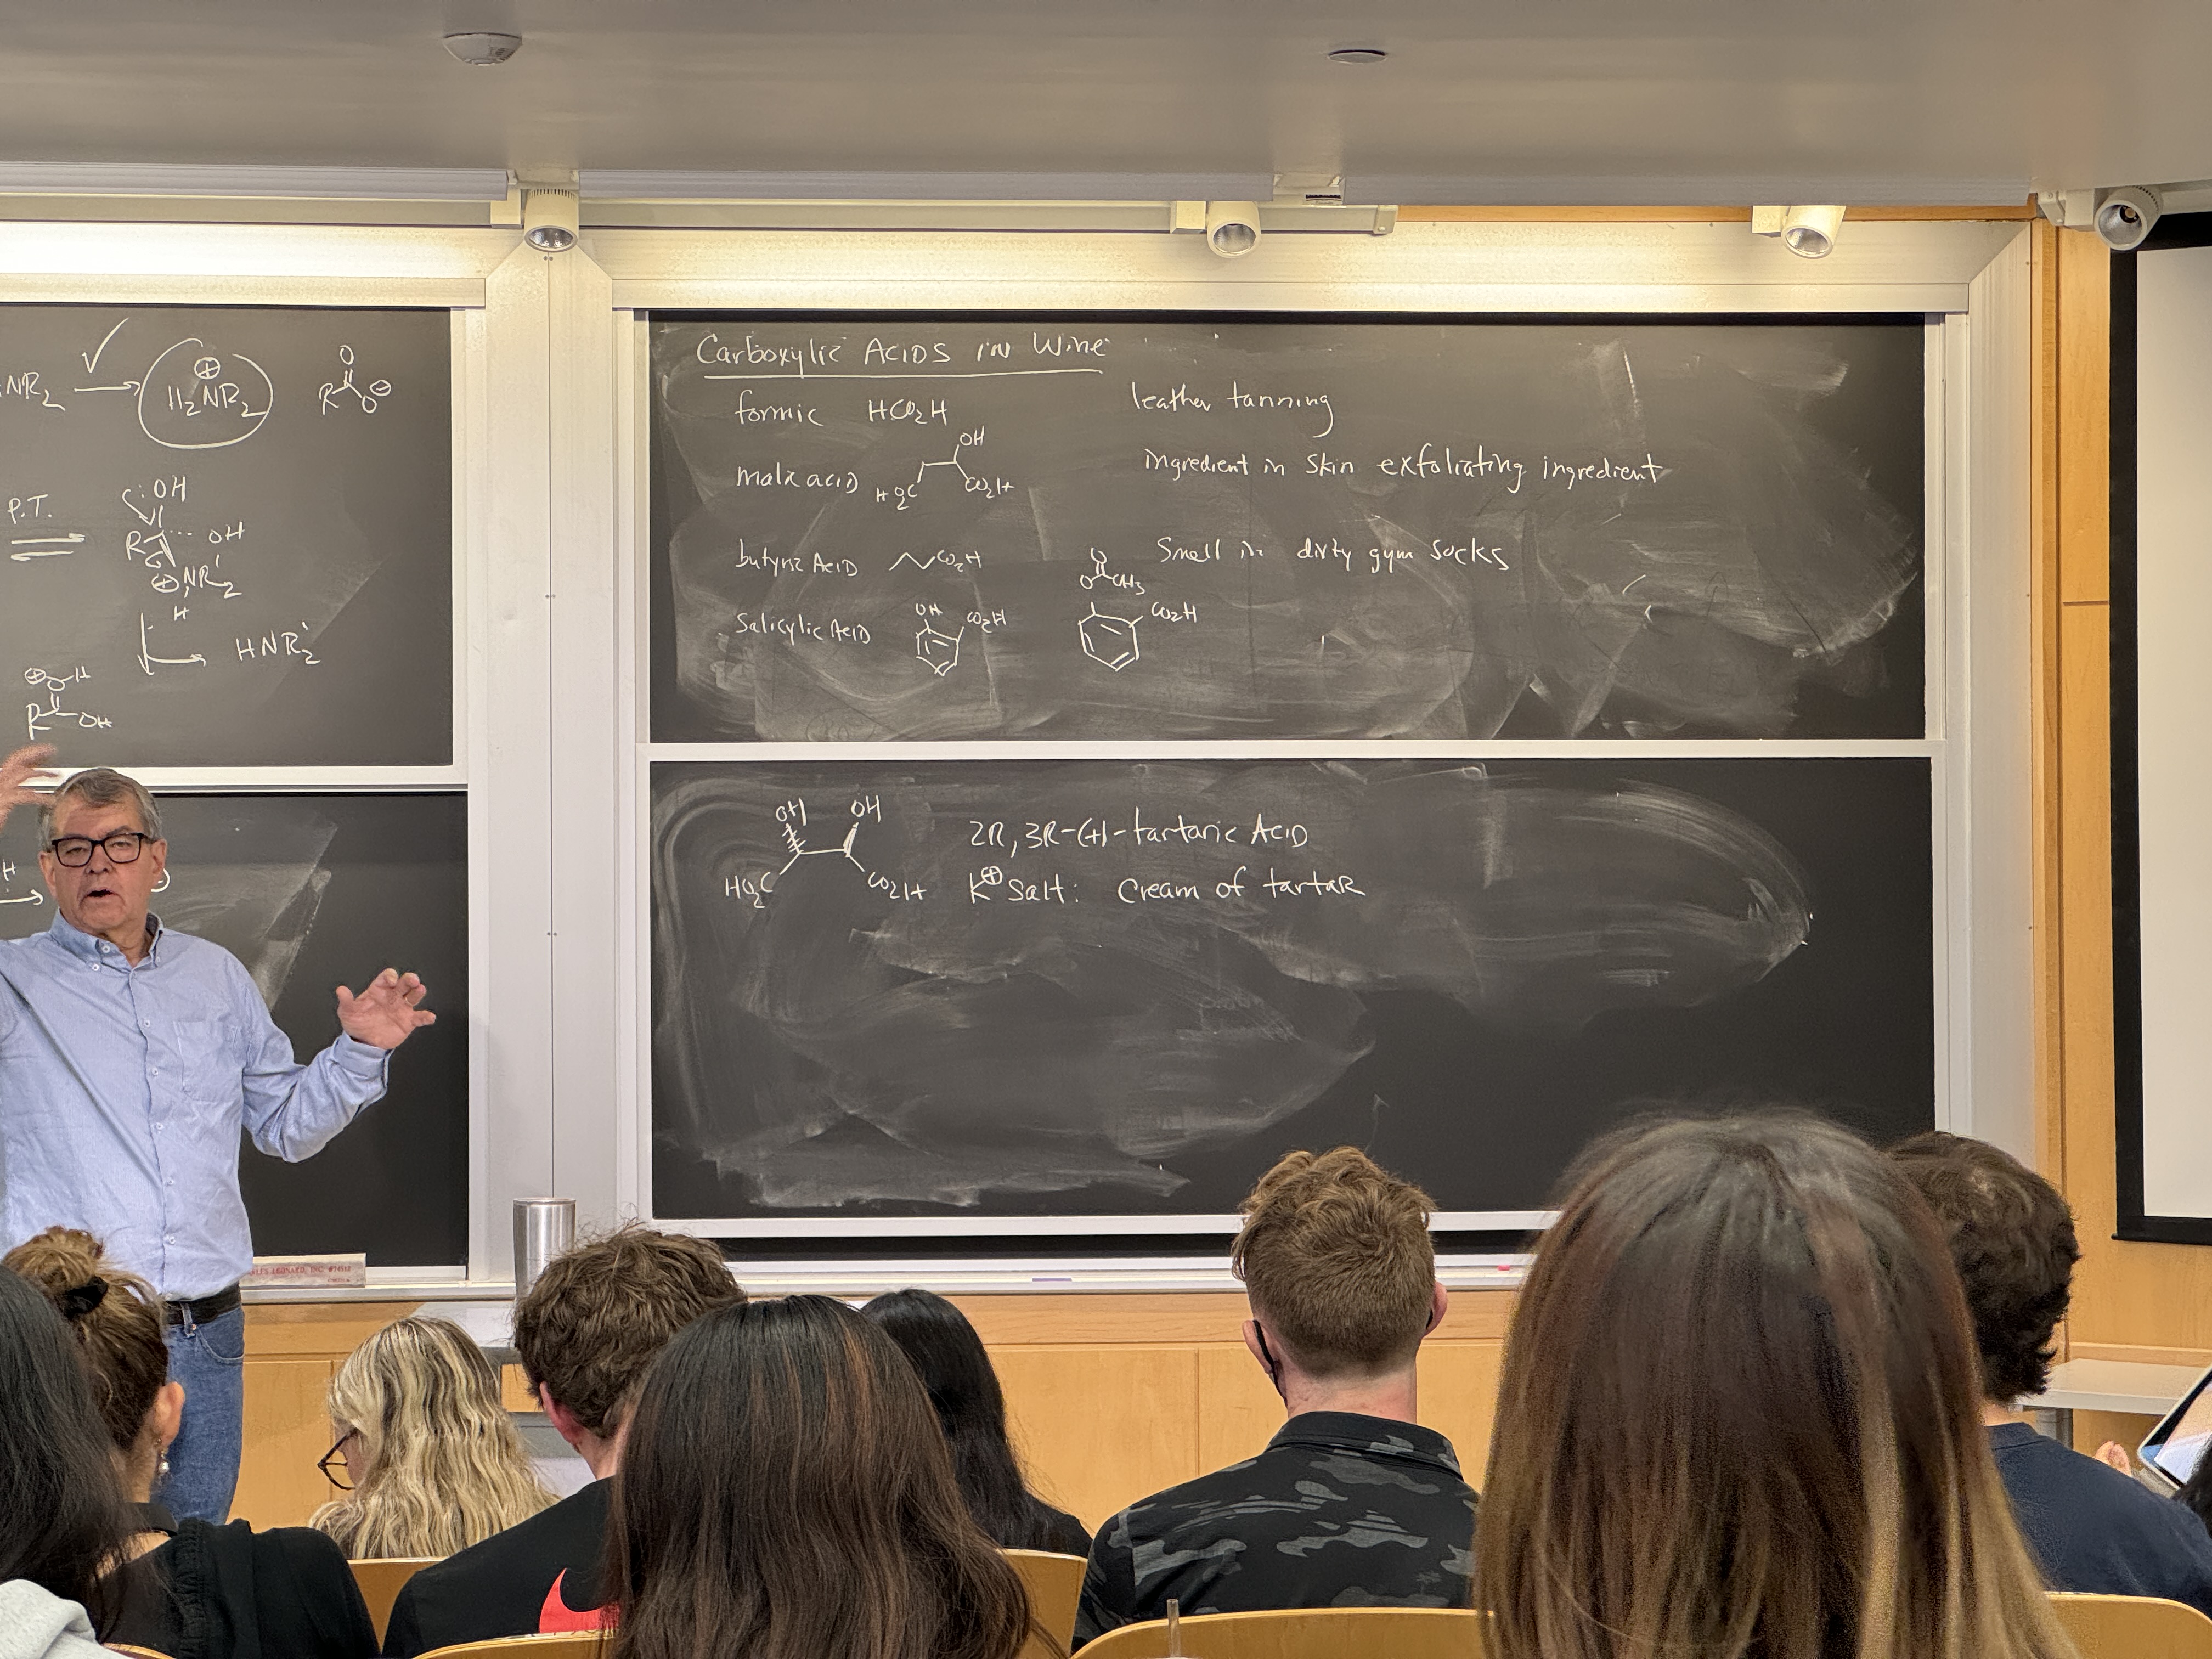 NR2 → H2NR2 ⊕ R O O ⊖
P.T.
:OH
R OH
⊕ NR'2
H
HNR'2
⊕ O-H
R OH
H
Carboxylic Acids in Wine
formic HCO2H leather tanning
malic acid HO2C OH CO2H ingredient in skin exfoliating ingredient
butyric Acid CO2H Smell in dirty gym socks
Salicylic Acid OH CO2H O O CH3 CO2H
OH OH
HO2C CO2H
2R, 3R-(+)-tartaric Acid
K⊕ Salt: Cream of tartar
LEONARD, INC.